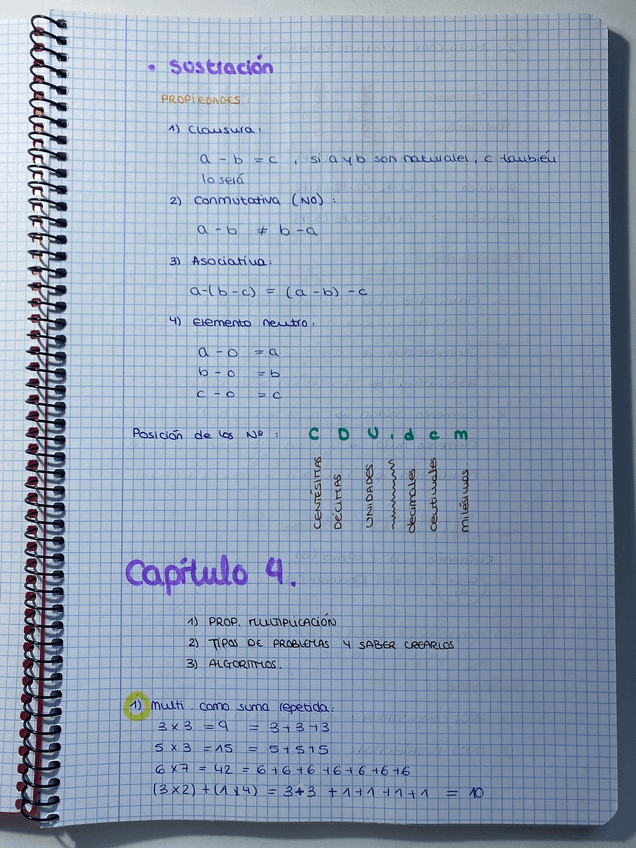 • Sustración
PROPIEDADES:
1) Clausura:
a - b = c , si a y b son naturales, c también
lo será
2) Conmutativa (NO):
a - b ≠ b - a
3) Asociativa:
a-(b-c) = (a-b)-c
4) Elemento neutro:
a - 0 = a
b - 0 = b
c - 0 = c
Posición de los Nº : C D U , d c m
CENTÉSIMAS
DÉCIMAS
UNIDADES
decimales
centimales
milésimas
Capítulo 4.
1) PROP. MULTIPLICACIÓN
2) TIPOS DE PROBLEMAS Y SABER CREARLOS
3) ALGORITMOS.
1) Multi. como suma repetida:
3 x 3 = 9 = 3+3+3
5 x 3 = 15 = 5+5+5
6 x 7 = 42 = 6+6+6+6+6+6+6
(3 x 2) + (1 x 4) = 3+3 + 1+1+1+1 = 10